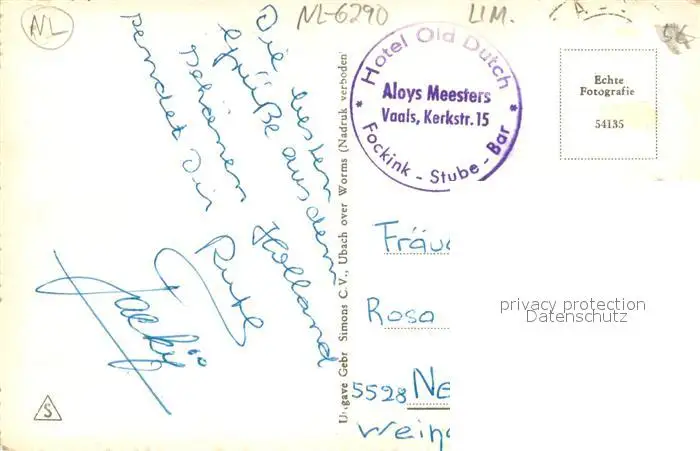 NL
NL-6290
LIM.
A.
56
Die besten
Grüße aus dem
schönen Holland
sendet Dir
Ruth
Uitgave Gebr Simons C.V., Ubach over Worms (Nadruk verboden)
* Hotel Old Dutch *
Aloys Meesters
Vaals, Kerkstr. 15
Fockink - Stube - Bar
Echte
Fotografie
54135
Fräu
Rosa
privacy protection
Datenschutz
5528 Ne
Wein
S